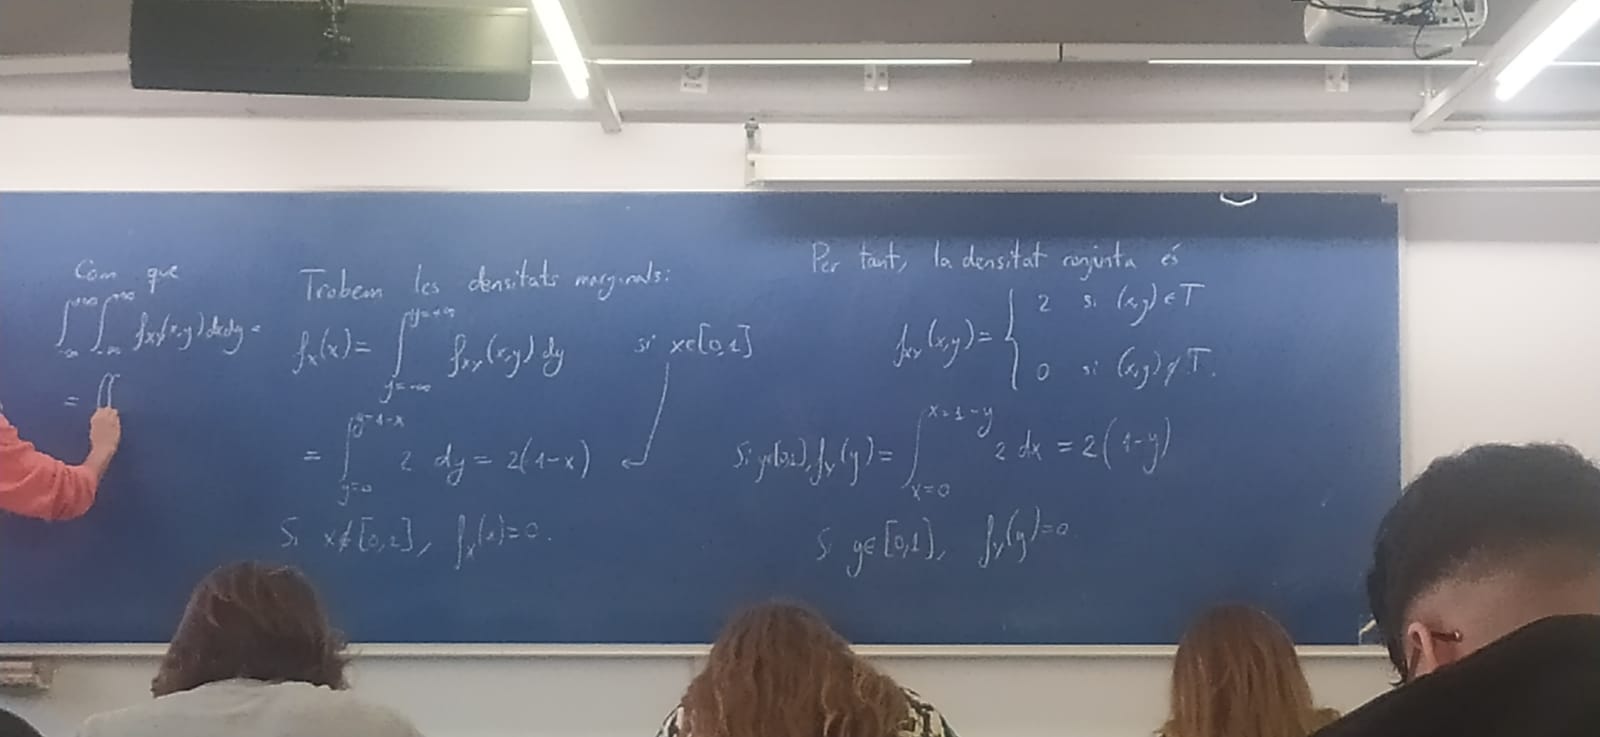 Com que
∫_{-∞}^{+∞} ∫_{-∞}^{+∞} f_{XY}(x,y) dxdy =
= ∬
Trobem les densitats marginals:
f_X(x) = ∫_{y=-∞}^{y=+∞} f_{XY}(x,y) dy si x∈[0,1]
= ∫_{y=0}^{y=1-x} 2 dy = 2(1-x)
Si x∉[0,1], f_X(x)=0.
Per tant, la densitat conjunta és
f_{XY}(x,y) = { 2 si (x,y)∈T
0 si (x,y)∉T.
Si y∈[0,1], f_Y(y) = ∫_{x=0}^{x=1-y} 2 dx = 2(1-y)
Si y∈[0,1], f_Y(y)=0